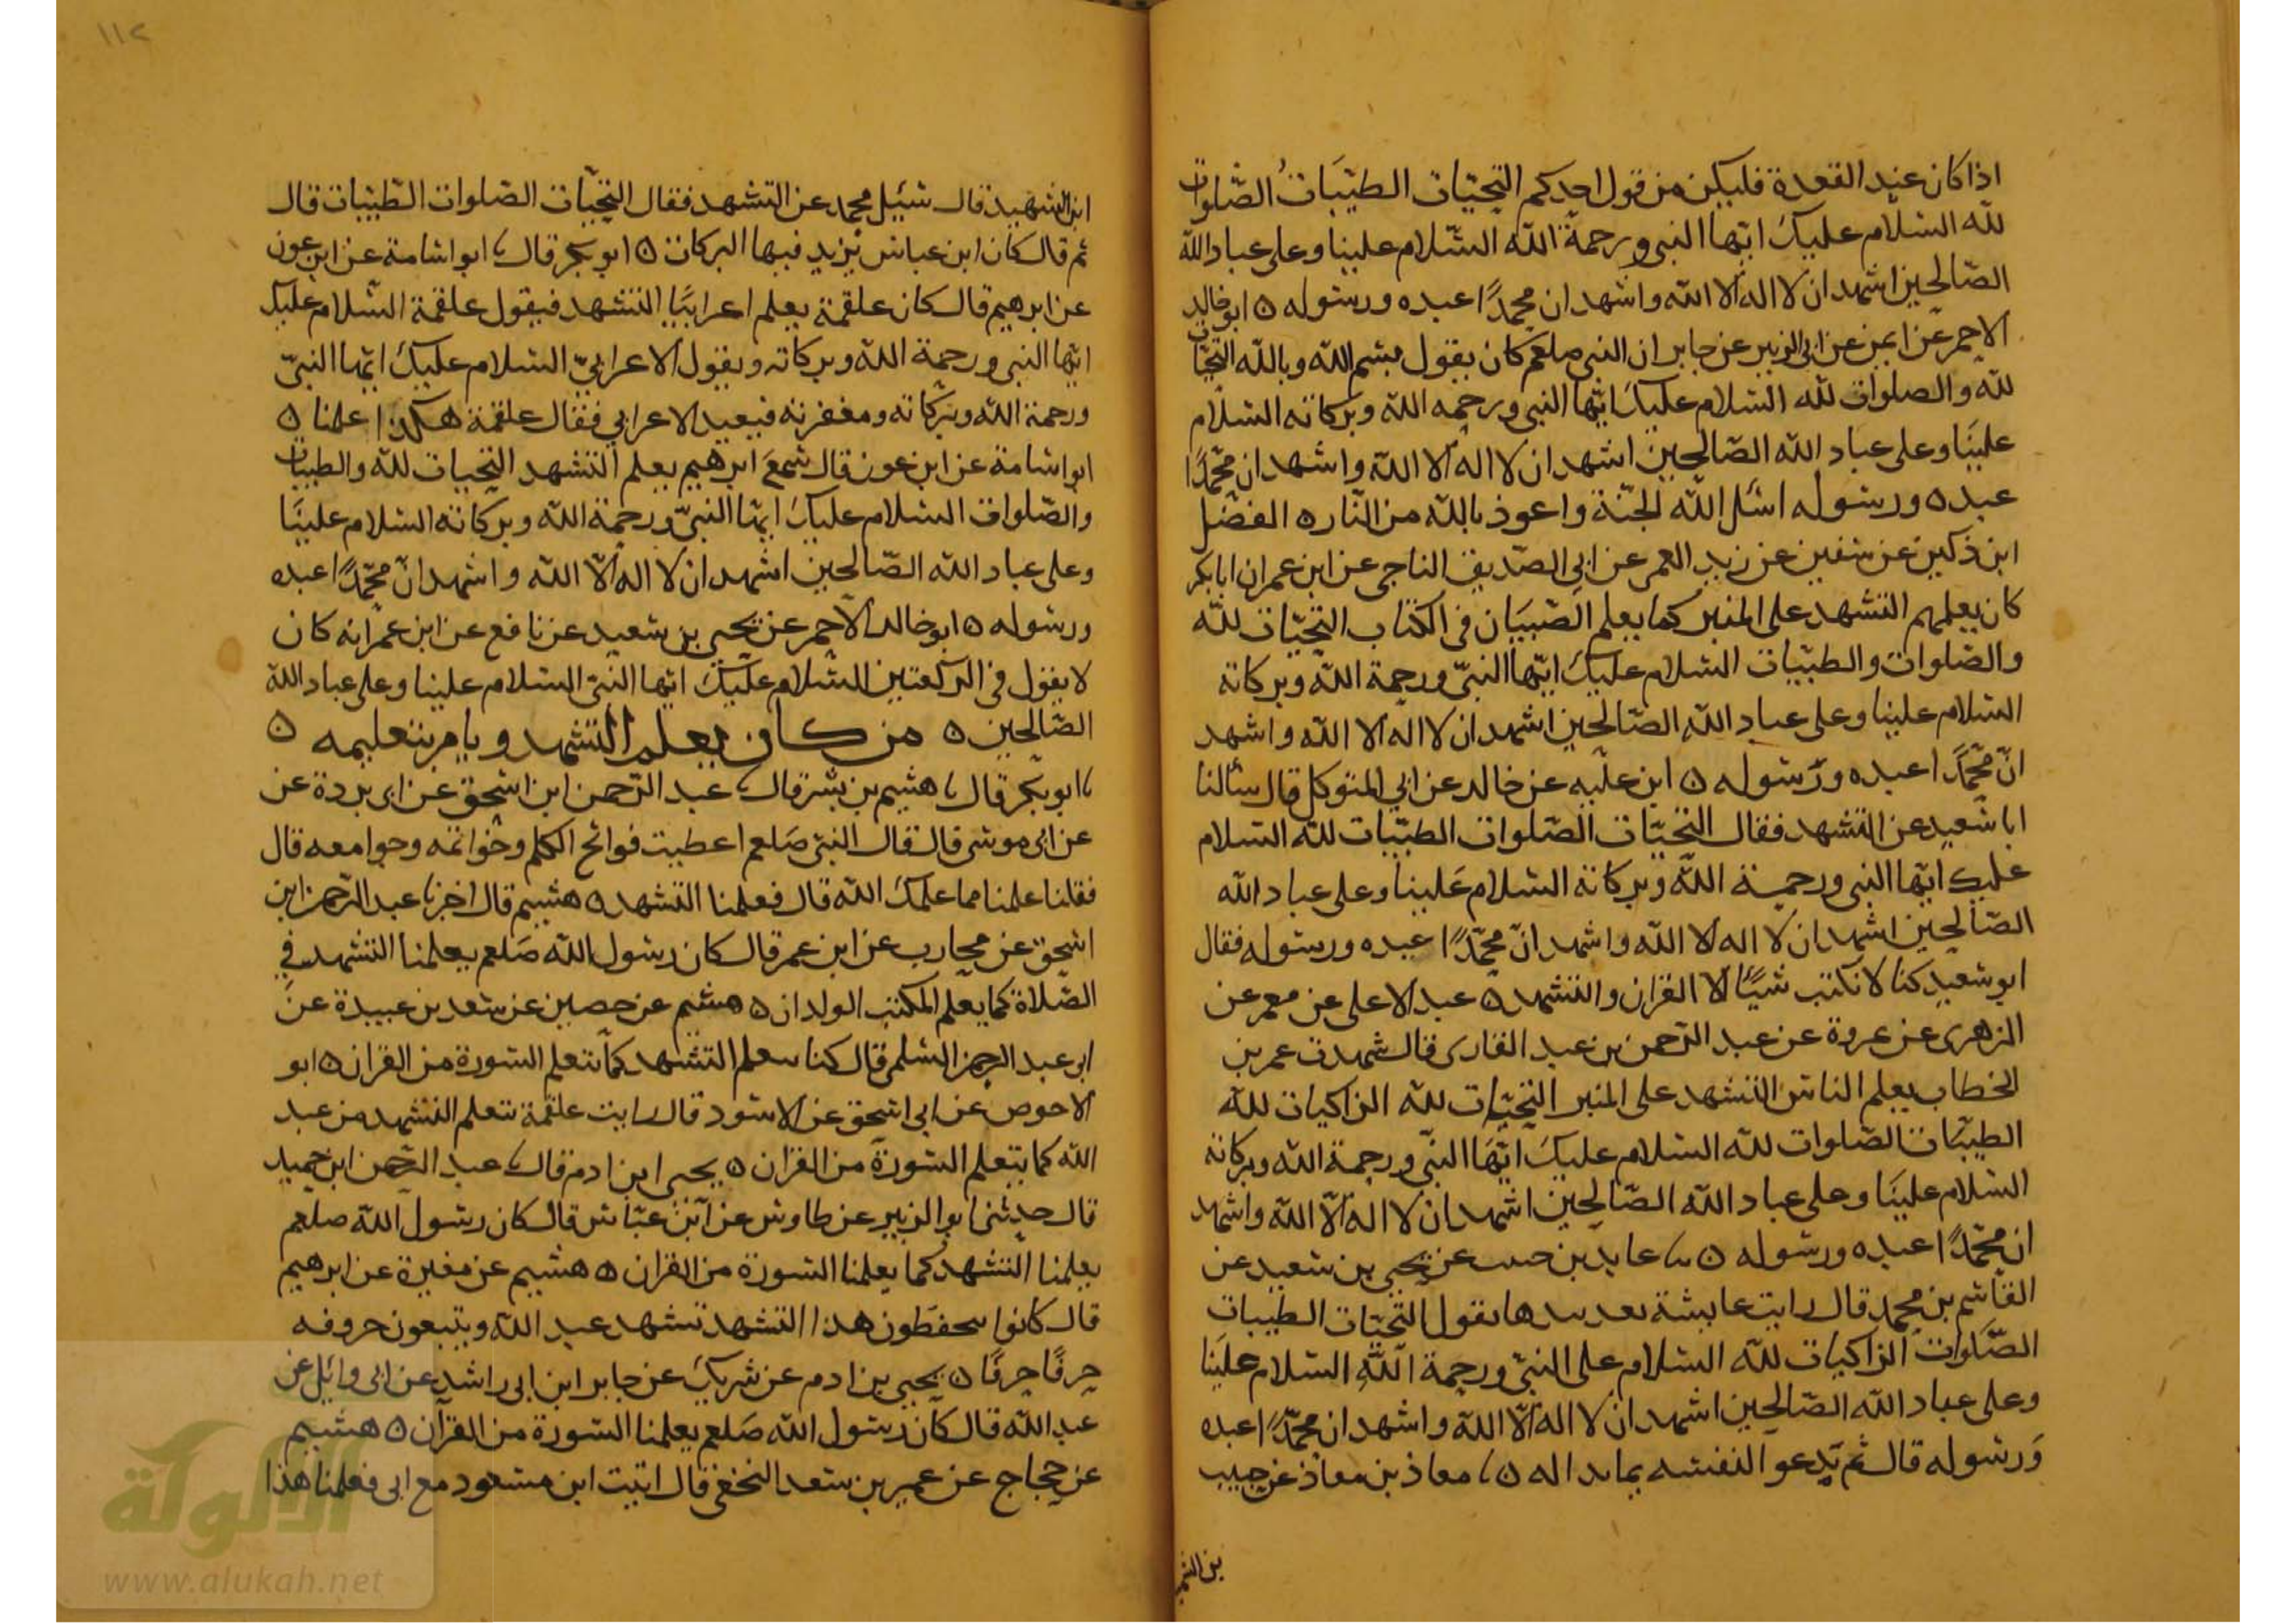 اذا كان عند القعدة فليكن من قول احدكم التحيّات الطيّبَاتُ الصّلوات
لله السّلام عليكَ ايّها النبى ورحمة الله السّلام علينا وعلى عباد الله
الصّالحين اشهد ان لا اله الا الله واشهد ان محمدًا عبده ورسوله ٥ ابو خالد
الاحمر عن ايمن عن ابى الزبير عن جابر ان النبى صلعم كان يقول بسم الله وبالله التحيّات
لله والصلوات لله السّلام عليكَ ايّها النبى ورحمه الله وبركاته السّلام
علينَا وعلى عباد الله الصّالحين اشهد ان لا اله الا الله واشهد ان محمّدًا
عبده ورسوله اسئل الله الجنّة واعوذ بالله من النّار ٥ الفضل
ابن ذكين عن سفين عن زيد العمر عن ابى الصّديق الناجى عن ابن عمر ان ابا بكر
كان يعلمهم التشهد على المنبر كما يعلم الصّبيَان فى الكتاب التحيّات لله
والصّلوات والطيّبات السّلام عليكَ ايّها النبىّ ورحمة الله وبركاته
السّلام علينا وعلى عباد الله الصّالحين اشهد ان لا اله الا الله واشهد
انّ محمّدًا عبده ورسوله ٥ ابن عليّه عن خالد عن ابى المتوكل قال سألنا
ابا سَعيد عن التشهد فقال التحيّات الصّلوات الطيّبات لله السّلام
عليك ايّها النبى ورحمة الله وبركاته السّلام عَلينا وعلى عباد الله
الصّالحين اشهد ان لا اله الا الله واشهد انّ محمّدًا عبده ورسوله فقال
ابو سَعيد كنا لا نكتب شيئًا الا القران والتشهد ٥ عبد الاعلى عن معمر عن
الزهرى عن عروة عن عبد الرّحمن بن عبد القارى قال شهدت عمر بن
الخطاب يعلم الناس التشهد على المنبر التحيّات لله الزاكيات لله
الطيبّات الصّلوات لله السّلام عليكَ ايّهَا النّبى ورحمة الله وبركاته
السّلام علينَا وعلى عباد الله الصّالحين اشهد ان لا اله الّا الله واشهد
ان محمّدًا عبده ورسوله ٥ ثنا عايد بن حبيب عن يحيى بن سَعيد عن
القاسم بن محمد قال رايت عايشة تعد بيدها تقول التّحيّات الطيبات
الصّلوات الزاكيات لله السّلام على النبىّ ورحمة الله السّلام علينَا
وعلى عباد الله الصّالحين اشهد ان لا اله الّا الله واشهد ان محمّدًا عبده
وَرسوله قال ثم يَدعو النفسه بما بدا له ٥ ثنا معاذ بن معاذ عن حبيب
بن الشهيد
١١٢
ابن الشهيد قال سُئِل محمد عن التشهد فقال التحيّات الصّلوات الطّيبات قال
ثم قال كان ابن عباس يزيد فيها البركات ٥ ابو بكر قال ثنا ابو اسَامة عن ابن عون
عن ابرهيم قال كان علقمة يعلم اعرابيًا التشهد فيقول علقمة السّلام عليك
ايّها النبى ورحمة الله وبركاته ويقول الاعرابىّ السّلام عليكَ ايّها النبىّ
ورحمة الله وبركاته ومغفرته فيعيد الاعرابي فقال علقمة هكذا علمنا ٥
ابو اسَامة عن ابن عون قال سمعَ ابرهيم يعلم التشهد التّحيات لله والطيبات
والصّلوات السّلام عليكَ ايّها النبىّ ورحمة الله وبركاته السّلام علينَا
وعلى عباد الله الصّالحين اشهد ان لا اله الّا الله واشهد انّ محمّدًا عبده
ورسوله ٥ ابو خالد الاحمر عن يحيى بن سَعيد عن نافع عن ابن عمر انه كان
لا يقول فى الركعتين السّلام عليكَ ايّها النّبىّ السّلام علينا وعلى عباد الله
الصّالحين ٥ من كان يعلم التشهد ويامر بتعليمه ٥
ثنا ابو بكر قال ثنا هشيم بن بشر قال ثنا عبد الرّحمن ابن اسحق عن ابى بردة عن
عن ابى موسى قال قال النبى صَلعم اعطيت فواتح الكلم وخواتمه وجوامعه قال
فقلنا علمنا مما علمك الله قال فعلمنا التشهد ٥ هشيم قال اخبرنا عبد الرّحمن ابن
اسحق عن محارب عن ابن عمر قال كان رسول الله صَلعم يعلمنا التشهد فى
الصّلاة كما يعلم المكتب الولدان ٥ هشيم عن حصين عن سعد بن عبيدة عن
ابى عبد الرحمن السّلمى قال كنا نتعلم التشهد كما نتعلم السّورة من القران ٥ ابو
الاحوص عن ابى اسحق عن الاسود قال رايت علقمة يتعلم التشهد من عبد
الله كما يتعلم السّورة من القران ٥ يحيى ابن ادم قال ثنا عبد الرّحمن ابن حميد
قال حدثنى ابو الزبير عن طاوس عن ابن عبّاس قال كان رسول الله صلعم
يعلمنا التشهد كما يعلمنا السّورة من القران ٥ هشيم عن مغيرة عن ابرهيم
قال كانوا يتحفظون هذا التشهد تشهد عبد الله ويتبعون حروفه
حرفًا حرفًا ٥ يحيى بن ادم عن شريك عن جابر ابن ابى راشد عن ابى وائل عن
عبد الله قال كان رسول الله صَلعم يعلمنا السّورة من القران ٥ هشيم
عن حجاج عن عمير بن سَعد النخعى قال اتيت ابن مسعود مع ابى فعلمنا هذا
الألوكة
www.alukah.net